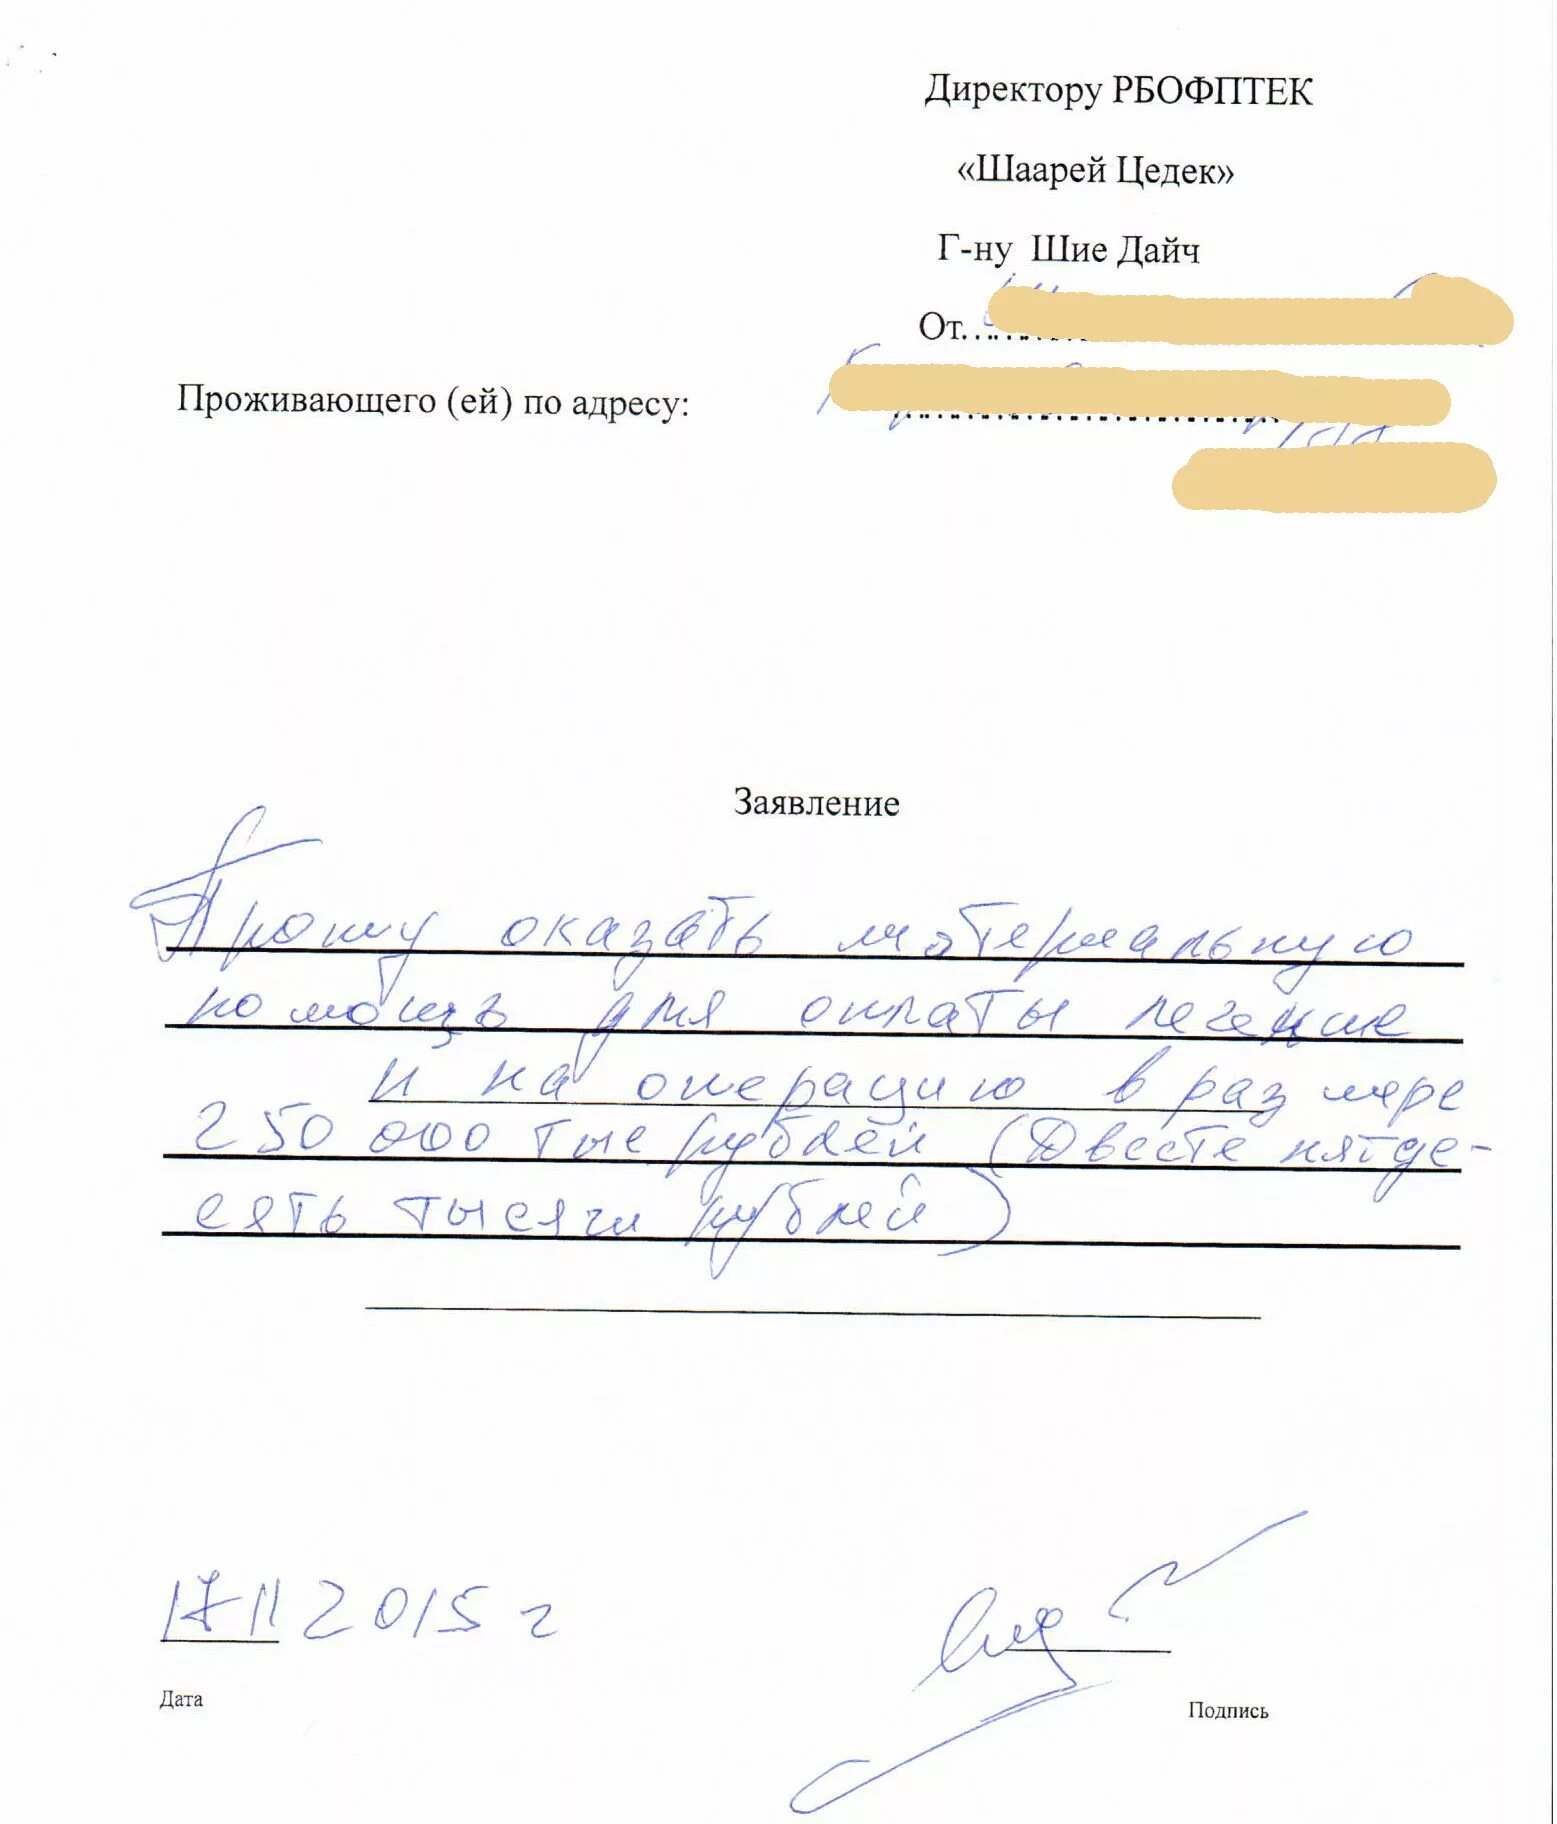 Директору РБОФПТЕК
«Шаарей Цедек»
Г-ну Шие Дайч
От
Проживающего (ей) по адресу:
Заявление
Прошу оказать материальную
помощь для оплаты лечение
и на операцию в размере
250 000 тыс рублей (Двесте пятде-
сять тысячи рублей)
17 11 2015 г
Дата
Подпись